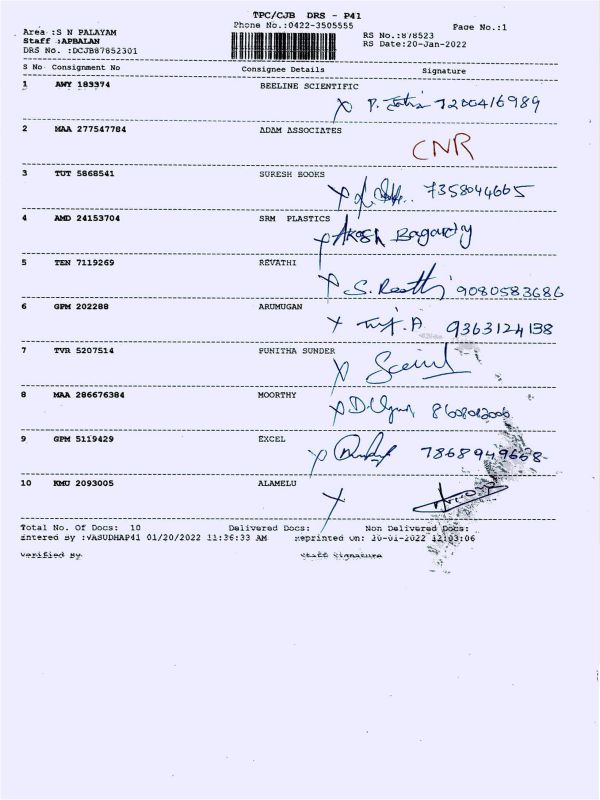 TPC/CJB DRS - P41
Phone No.:0422-3505555 Page No.:1
Area :S N PALAYAM RS No.:878523
Staff :APBALAN RS Date:20-Jan-2022
DRS No. :DCJB87852301
S No Consignment No Consignee Details Signature
1 AWY 183374 BEELINE SCIENTIFIC
7200416989
2 MAA 277547784 ADAM ASSOCIATES
CNR
3 TUT 5868541 SURESH BOOKS
7358044665
4 AMD 24153704 SRM PLASTICS
Akash
5 TEN 7119269 REVATHI
S. 9080583686
6 GPM 202288 ARUMUGAN
9363124138
7 TVR 5207514 PUNITHA SUNDER
8 MAA 286676384 MOORTHY
9 GPM 5119429 EXCEL
7868949668
10 KMU 2093005 ALAMELU
Total No. Of Docs: 10 Delivered Docs: Non Delivered Docs:
Entered By :VASUDHAP41 01/20/2022 11:36:33 AM Reprinted On: 20-01-2022 12:03:06
Verified By Staff Signature